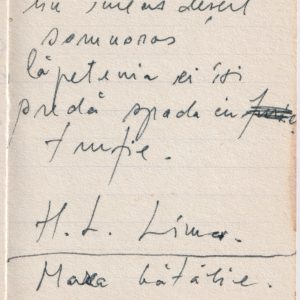 desert
somnoros
căpetenia ei își
predă spada cu
trufie.
H. L. Lima.
Marea bătălie.